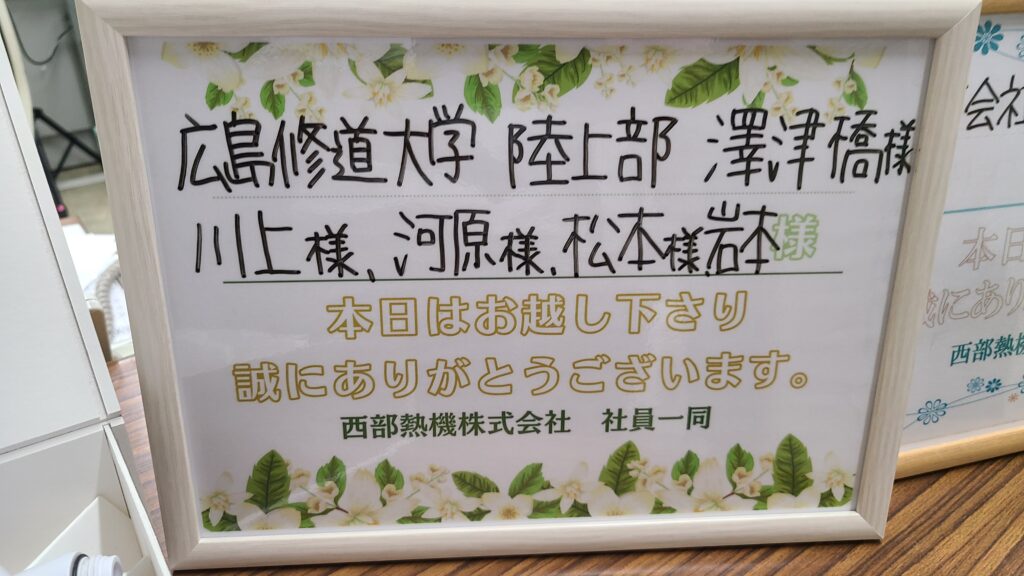 広島修道大学 陸上部 澤津橋様
川上様、河原様、松本様、岩本様
本日はお越し下さり
誠にありがとうございます。
西部熱機株式会社 社員一同
会社
本日
誠にあり
西部熱機